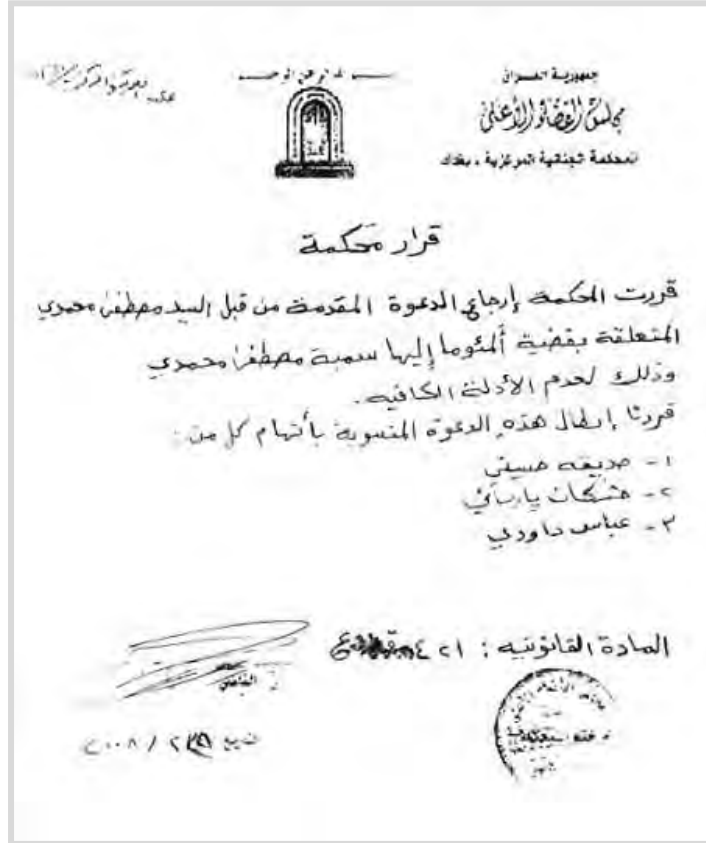 جمهورية العراق
مجلس القضاء الأعلى
المحكمة الجنائية المركزية ، بغداد
قرار محكمة
قررت المحكمة إرجاع الدعوة المقدمة من قبل السيد مصطفى محمدي
المتعلقة بقضية ألمئوما إليها سمية مصطفى محمدي
وذلك لعدم الأدلة الكافيه.
قررنا إبطال هذه الدعوة المنسوبة بأتهام كل من:
١- صديقه حسيني
٢-
٣- عباس داودي
المادة القانونيه: ٤٢١
القاضي
٢٠٠٨/